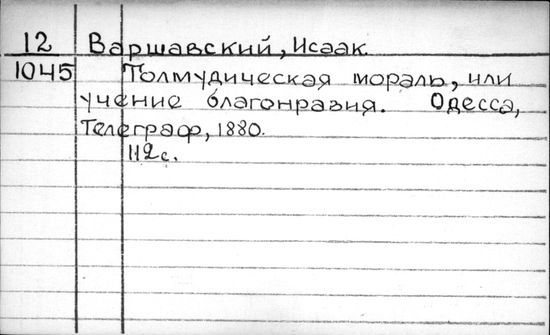 12 Варшавский, Исаак
1045 Толмудическая мораль, или
учение благонравия. Одесса,
Телеграф, 1880.
112с.